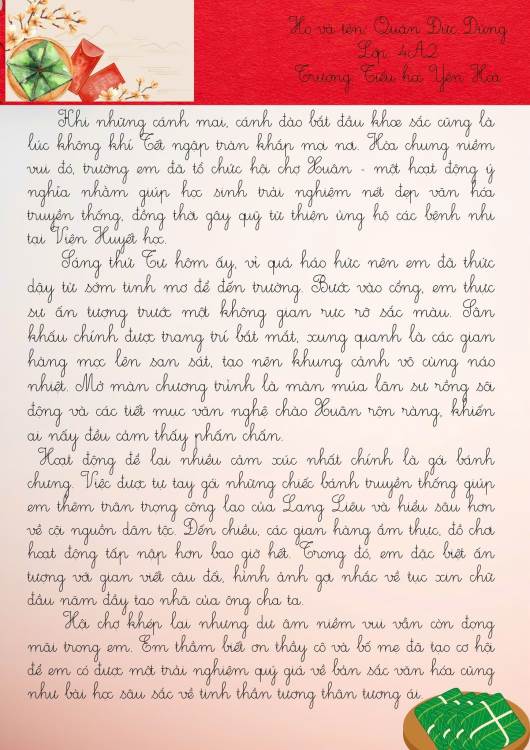 Họ và tên: Quản Đức Dũng
Lớp 4A2
Trường Tiểu học Yên Hoà
Khi những cánh mai, cánh đào bắt đầu khoe sắc cũng là
lúc không khí Tết ngập tràn khắp mọi nơi. Hòa chung niềm
vui đó, trường em đã tổ chức hội chợ Xuân - một hoạt động ý
nghĩa nhằm giúp học sinh trải nghiệm nét đẹp văn hóa
truyền thống, đồng thời gây quỹ từ thiện ủng hộ các bệnh nhi
tại Viện Huyết học.
Sáng thứ Tư hôm ấy, vì quá háo hức nên em đã thức
dậy từ sớm tinh mơ để đến trường. Bước vào cổng, em thực
sự ấn tượng trước một không gian rực rỡ sắc màu. Sân
khấu chính được trang trí bắt mắt, xung quanh là các gian
hàng mọc lên san sát, tạo nên khung cảnh vô cùng náo
nhiệt. Mở màn chương trình là màn múa lân sư rồng sôi
động và các tiết mục văn nghệ chào Xuân rộn ràng, khiến
ai nấy đều cảm thấy phấn chấn.
Hoạt động để lại nhiều cảm xúc nhất chính là gói bánh
chưng. Việc được tự tay gói những chiếc bánh truyền thống giúp
em thêm trân trọng công lao của Lang Liêu và hiểu sâu hơn
về cội nguồn dân tộc. Đến chiều, các gian hàng ẩm thực, đồ chơi
hoạt động tấp nập hơn bao giờ hết. Trong đó, em đặc biệt ấn
tượng với gian viết câu đối, hình ảnh gợi nhắc về tục xin chữ
đầu năm đầy tao nhã của ông cha ta.
Hội chợ khép lại nhưng dư âm niềm vui vẫn còn đọng
mãi trong em. Em thầm biết ơn thầy cô và bố mẹ đã tạo cơ hội
để em có được một trải nghiệm quý giá về bản sắc văn hóa cũng
như bài học sâu sắc về tinh thần tương thân tương ái.